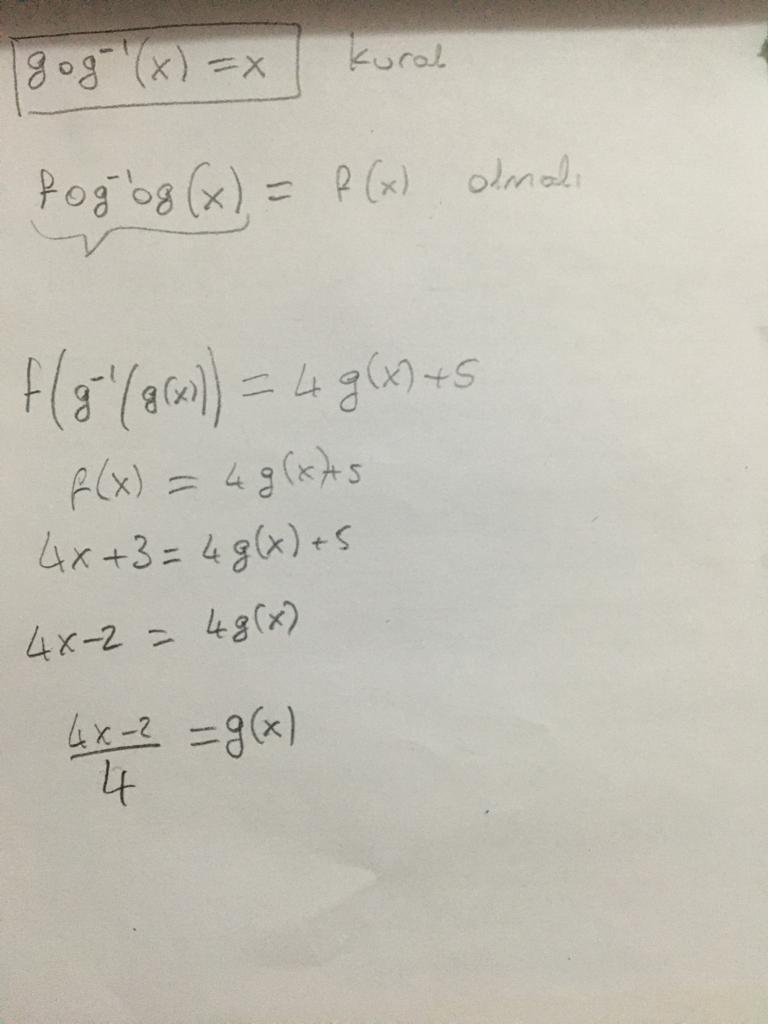 gog⁻¹(x) = x kural
fog⁻¹og(x) = f(x) olmalı
f(g⁻¹(g(x))) = 4g(x)+5
f(x) = 4g(x)+5
4x+3 = 4g(x)+5
4x-2 = 4g(x)
4x-2
—— = g(x)
4